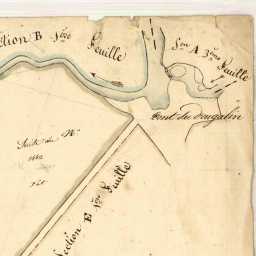 ction B 1ère Feuille
Son A 3ème Feuille
Pont du Dougalin
Suite du No
1112
Section E 1ère Feuille